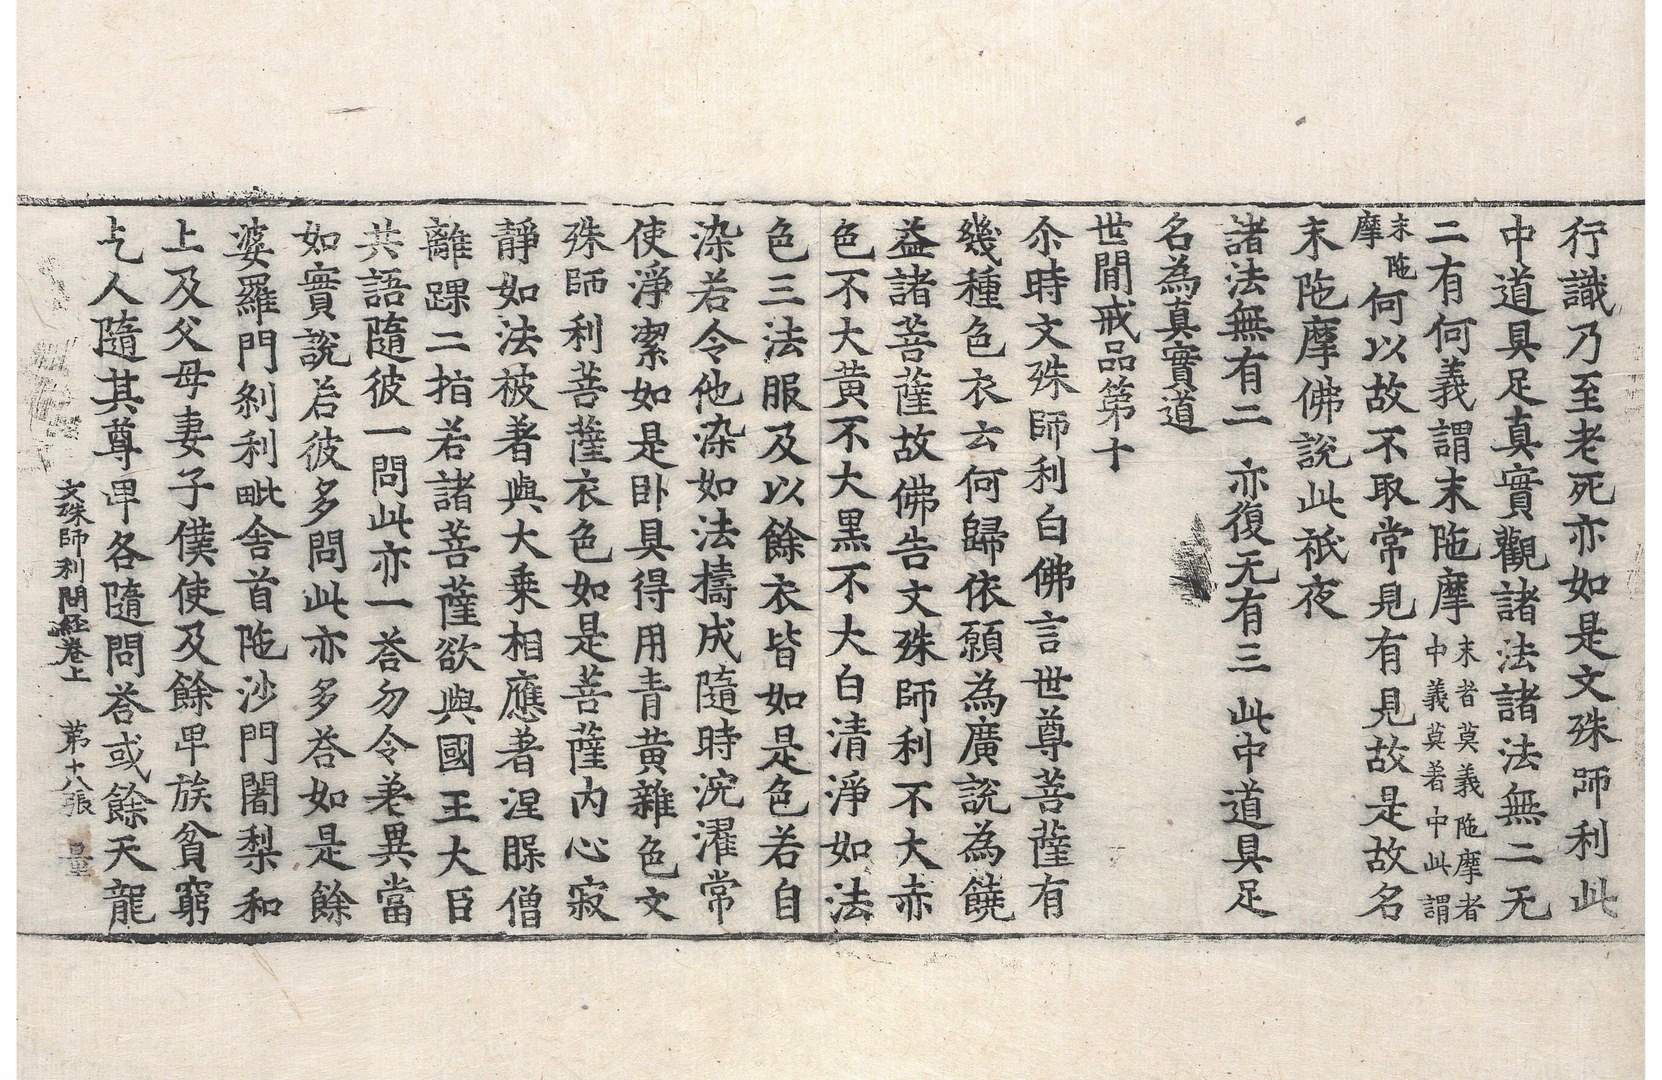 行識乃至老死亦如是文殊師利此
中道具足真實觀諸法諸法無二无
二有何義謂末陁摩末者莫義陁摩者中義莫著中此謂
末陁摩何以故不取常見有見故是故名
末陁摩佛說此祇夜
諸法無有二 亦復无有三 此中道具足
名為真實道
世間戒品第十
尒時文殊師利白佛言世尊菩薩有
幾種色衣云何歸依願為廣說為饒
益諸菩薩故佛告文殊師利不大赤
色不大黄不大黑不大白清淨如法
色三法服及以餘衣皆如是色若自
染若令他染如法擣成隨時浣濯常
使淨潔如是卧具得用青黄雜色文
殊師利菩薩衣色如是菩薩内心寂
靜如法被著與大乗相應著涅䐁僧
離踝二指若諸菩薩欲與國王大臣
共語隨彼一問此亦一荅勿令差異當
如實說若彼多問此亦多荅如是餘
婆羅門刹利毗舍首陁沙門闍梨和
上及父母妻子僕使及餘卑族貧窮
乞人隨其尊卑各隨問荅或餘天龍
文殊師利問經卷上 第十八張